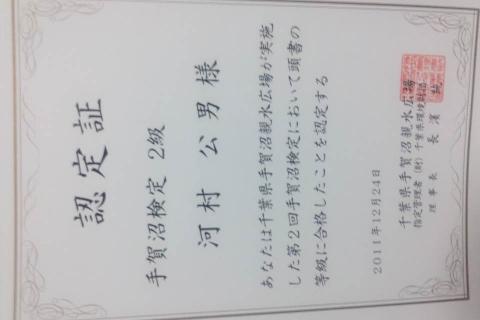 認定証
手賀沼検定 2級
河村 公男 様
あなたは千葉県手賀沼親水広場が実施
した第2回手賀沼検定において頭書の
等級に合格したことを認定する
2011年12月24日
千葉県手賀沼親水広場
指定管理者(財)千葉県環境財団
理事長 長濱 純